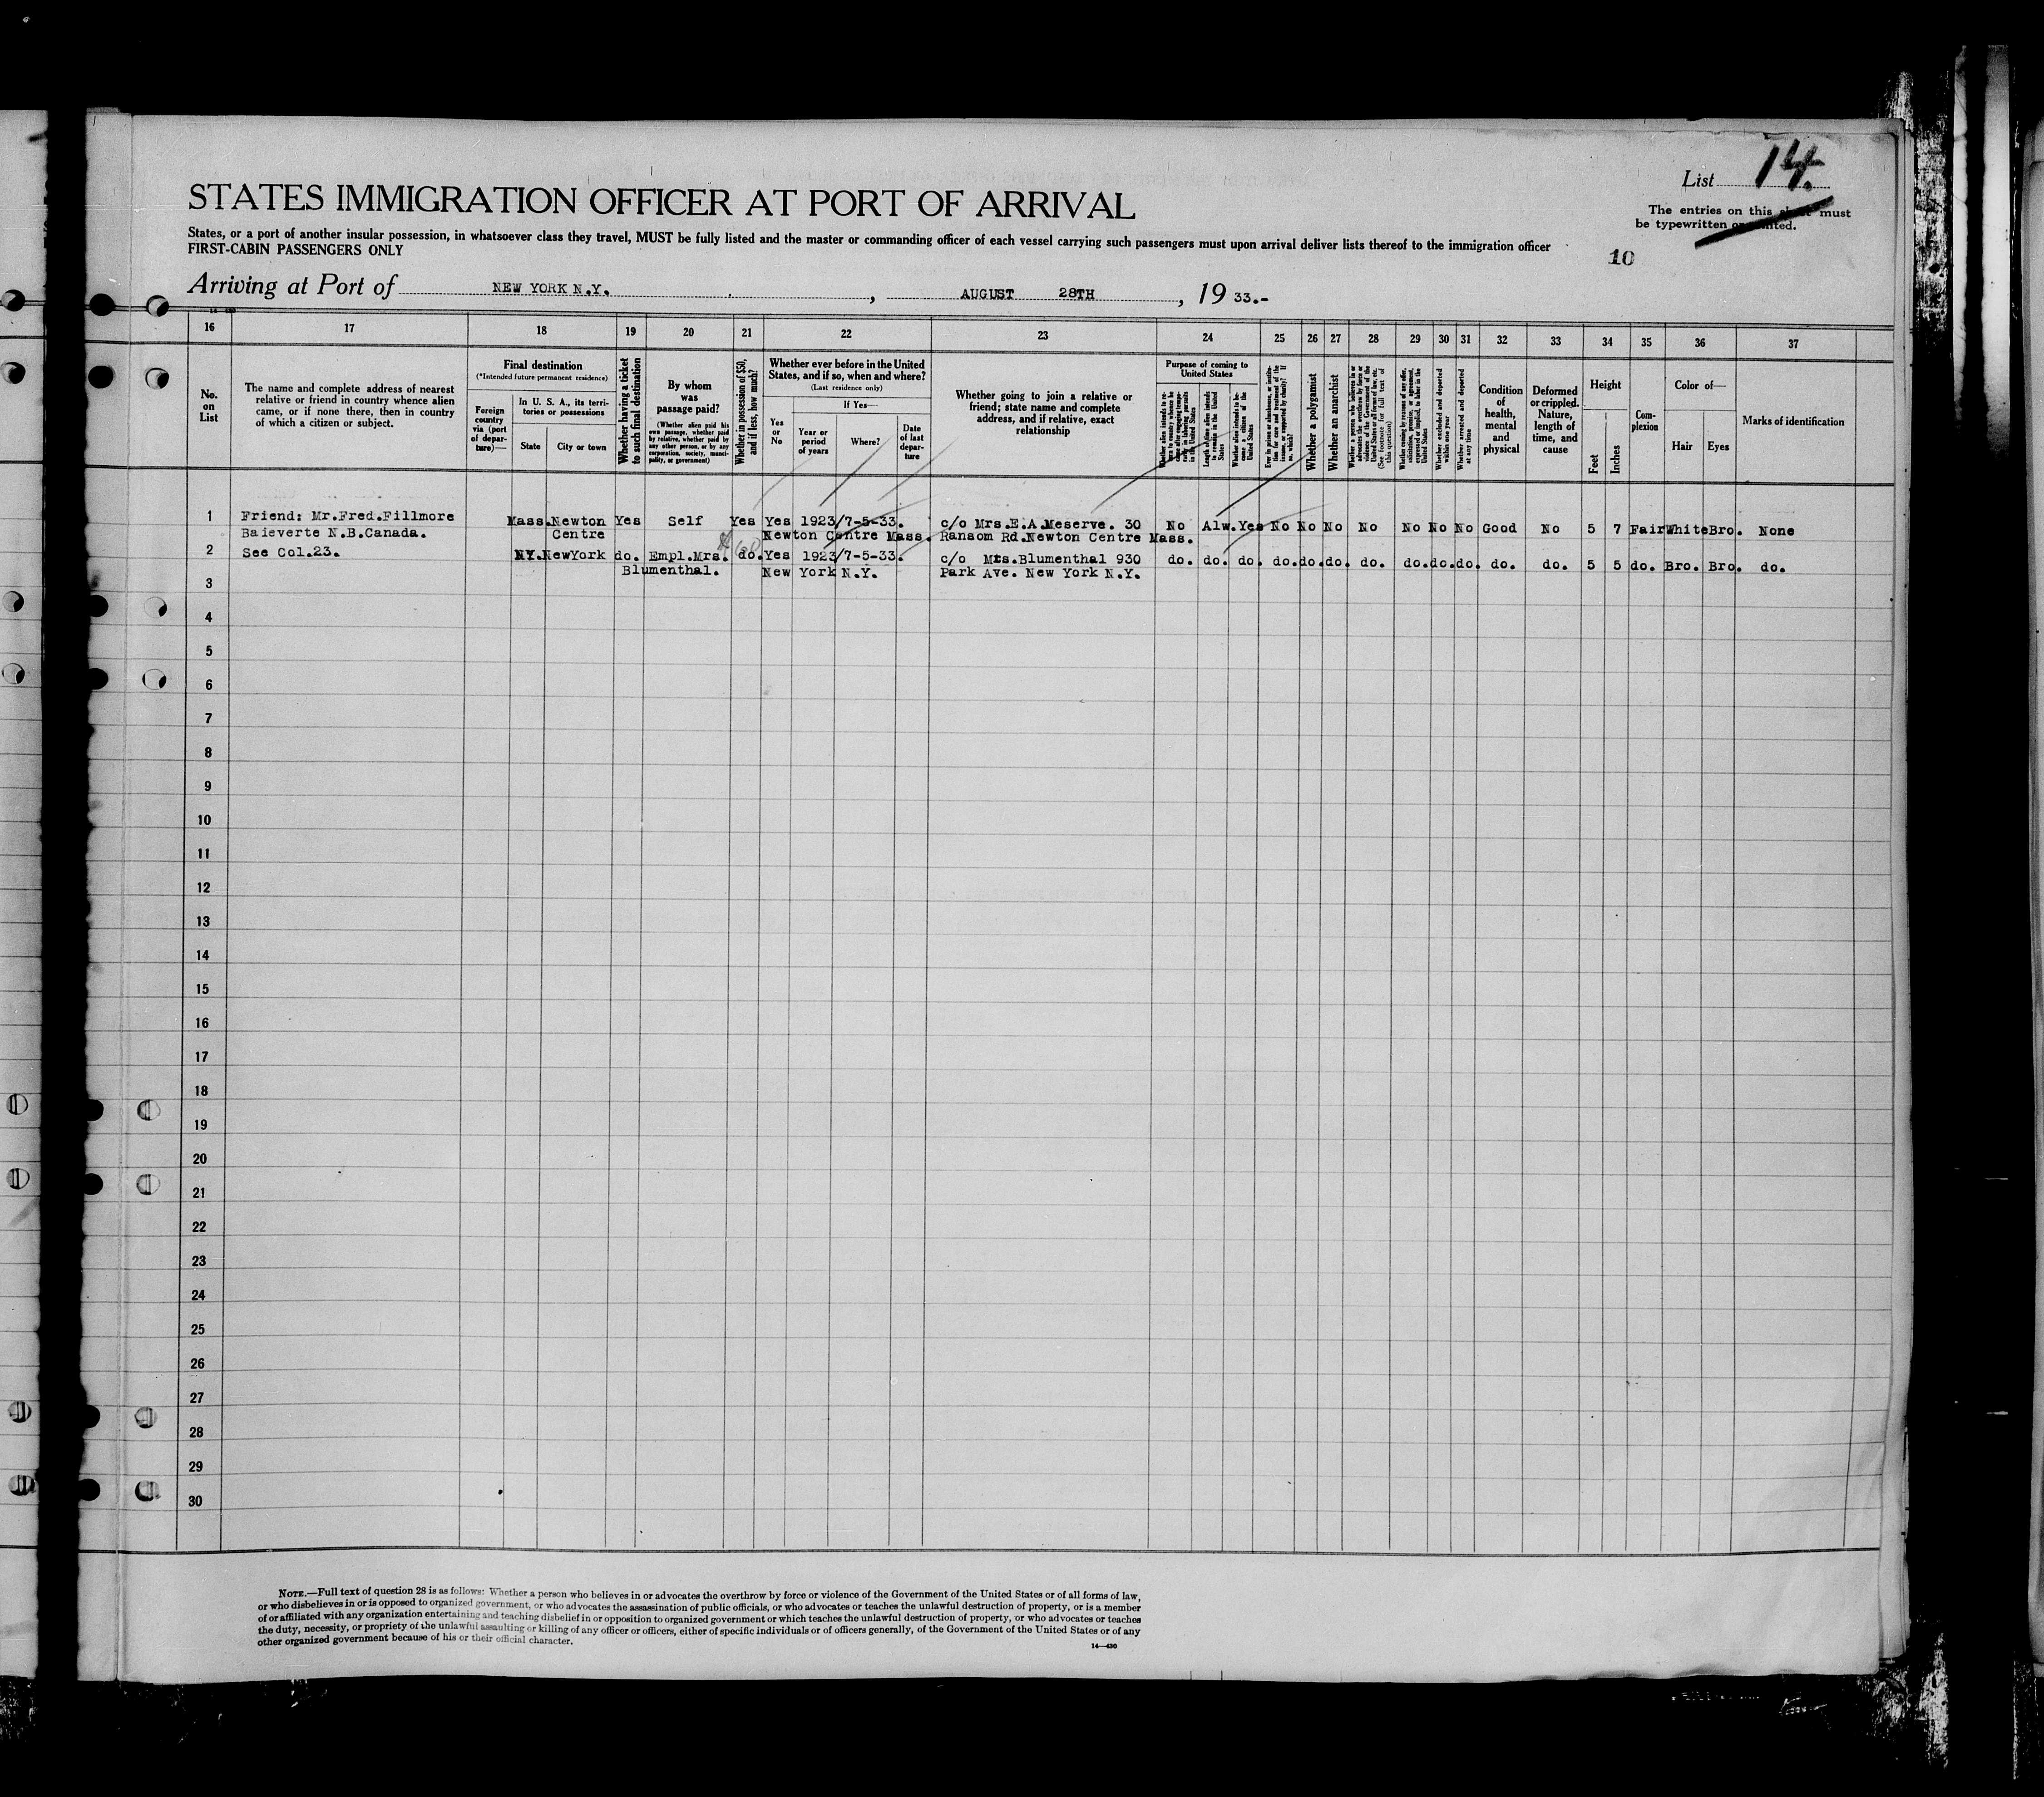 List 14.
The entries on this sheet must
be typewritten or printed.
STATES IMMIGRATION OFFICER AT PORT OF ARRIVAL
States, or a port of another insular possession, in whatsoever class they travel, MUST be fully listed and the master or commanding officer of each vessel carrying such passengers must upon arrival deliver lists thereof to the immigration officer
FIRST-CABIN PASSENGERS ONLY
10
Arriving at Port of NEW YORK N.Y. , AUGUST 28TH , 19 33.-
16 17 18 19 20 21 22 23 24 25 26 27 28 29 30 31 32 33 34 35 36 37
No. on List
The name and complete address of nearest relative or friend in country whence alien came, or if none there, then in country of which a citizen or subject.
Final destination
(*Intended future permanent residence)
Foreign country via (port of departure)—
In U. S. A., its territories or possessions
State
City or town
Whether having a ticket to such final destination
By whom was passage paid?
(Whether alien paid his own passage, whether paid by relative, whether paid by any other person, or by any corporation, society, municipality, or government)
Whether in possession of $50, and if less, how much?
Whether ever before in the United States, and if so, when and where?
(Last residence only)
Yes or No
If Yes—
Year or period of years
Where?
Date of last departure
Whether going to join a relative or friend; state name and complete address, and if relative, exact relationship
Purpose of coming to United States
Length of time alien intends to remain in the United States
Whether alien intends to become a citizen of the United States
Whether a polygamist
Whether an anarchist
Whether excluded and deported within one year
Whether arrested and deported at any time
Condition of health, mental and physical
Deformed or crippled. Nature, length of time, and cause
Height
Feet
Inches
Complexion
Color of—
Hair
Eyes
Marks of identification
1 Friend: Mr.Fred.Fillmore Mass. Newton Yes Self Yes Yes 1923/7-5-33. c/o Mrs.E.A.Meserve. 30 No Alw. Yes No No No No No No No Good No 5 7 Fair White Bro. None
Baieverte N.B.Canada. Centre Newton Centre Mass. Ransom Rd.Newton Centre Mass.
2 See Col.23. NY. NewYork do. Empl.Mrs. do. Yes 1923/7-5-33. c/o Mrs.Blumenthal 930 do. do. do. do. do. do. do. do. do. do. do. do. 5 5 do. Bro. Bro. do.
Blumenthal. New York N.Y. Park Ave. New York N.Y.
3
4
5
6
7
8
9
10
11
12
13
14
15
16
17
18
19
20
21
22
23
24
25
26
27
28
29
30
NOTE.—Full text of question 28 is as follows: Whether a person who believes in or advocates the overthrow by force or violence of the Government of the United States or of all forms of law,
or who disbelieves in or is opposed to organized government, or who advocates the assassination of public officials, or who advocates or teaches the unlawful destruction of property, or is a member
of or affiliated with any organization entertaining and teaching disbelief in or opposition to organized government or which teaches the unlawful destruction of property, or who advocates or teaches
the duty, necessity, or propriety of the unlawful assaulting or killing of any officer or officers, either of specific individuals or of officers generally, of the Government of the United States or of any
other organized government because of his or their official character.
14—430